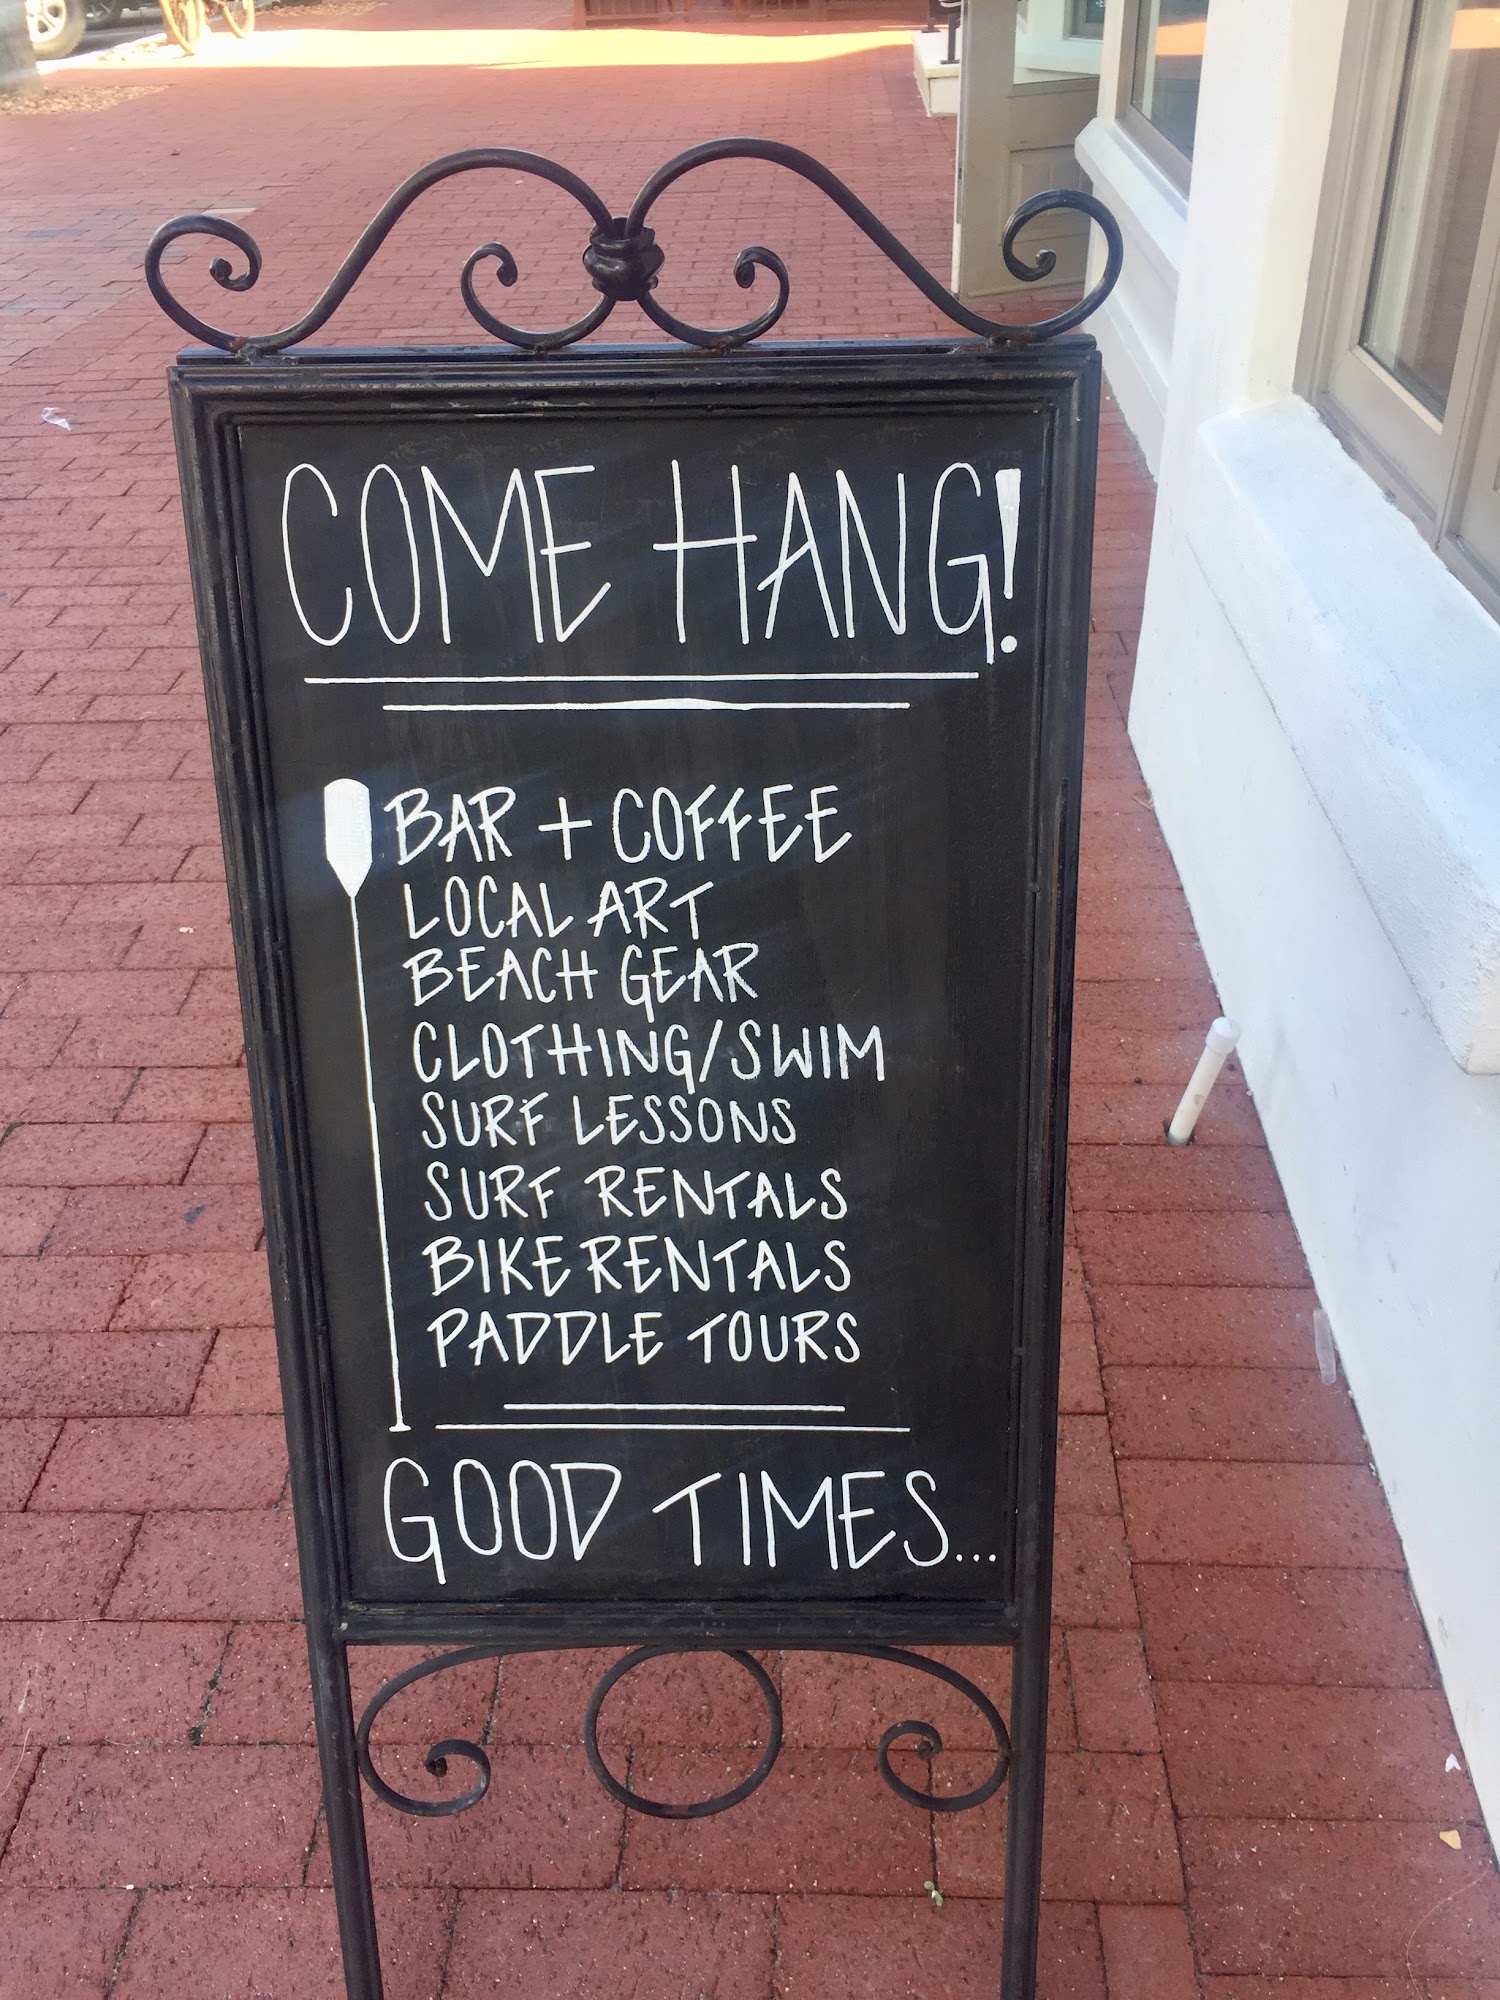 COME HANG!
BAR + COFFEE
LOCAL ART
BEACH GEAR
CLOTHING/SWIM
SURF LESSONS
SURF RENTALS
BIKE RENTALS
PADDLE TOURS
GOOD TIMES...